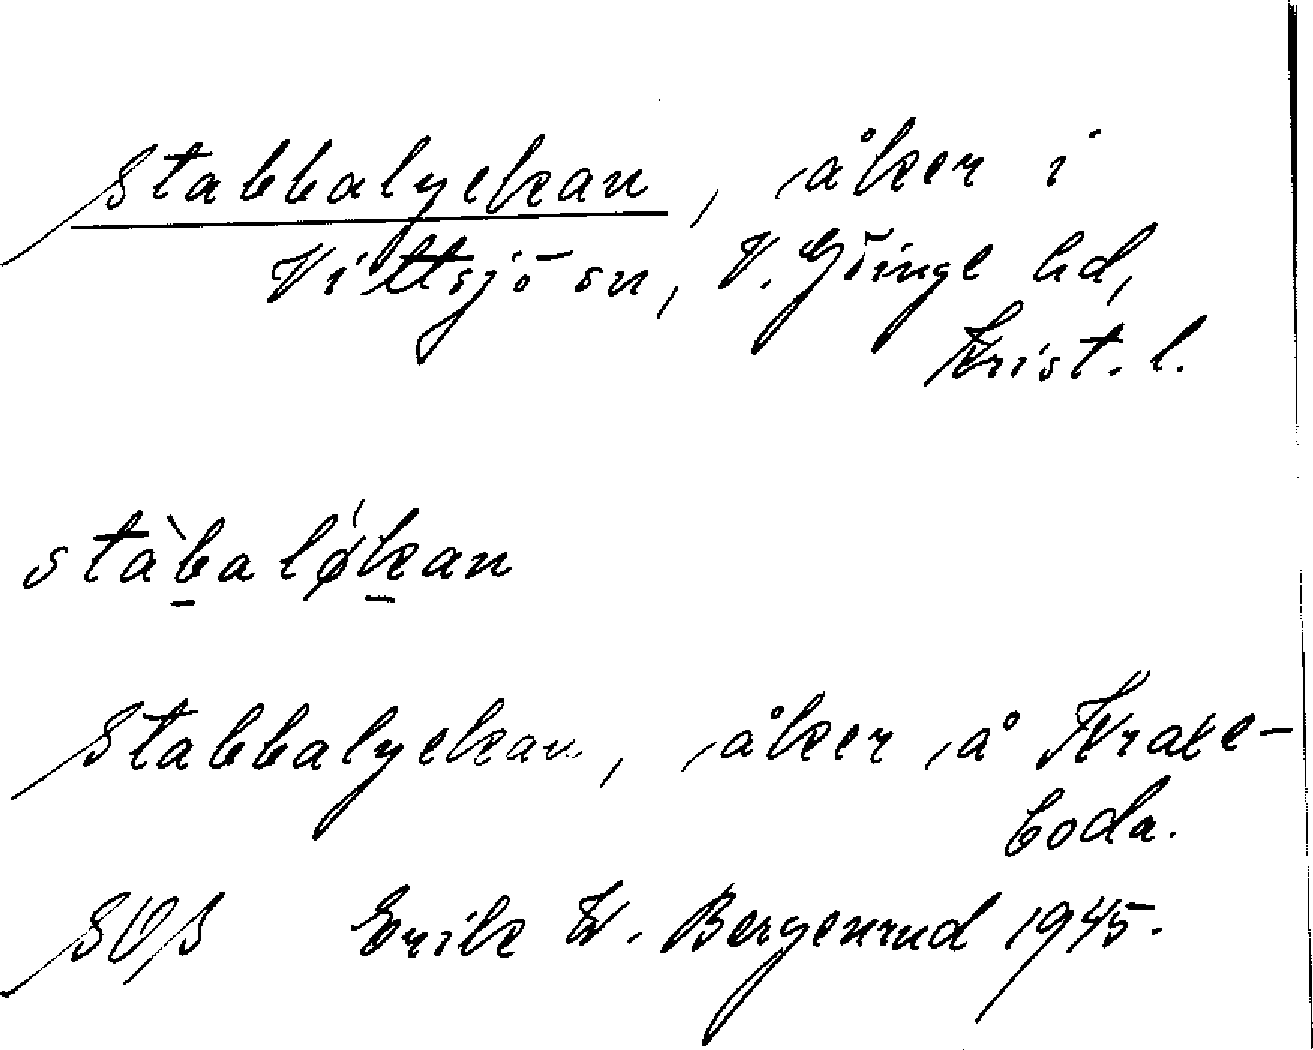 Stabbalyckan, åker i
Vittsjö sn, V. Göinge hd,
Krist. l.
stàbaløkan
Stabbalyckan, åker å
boda.
SOS Erik W. Bergenrud 1945.